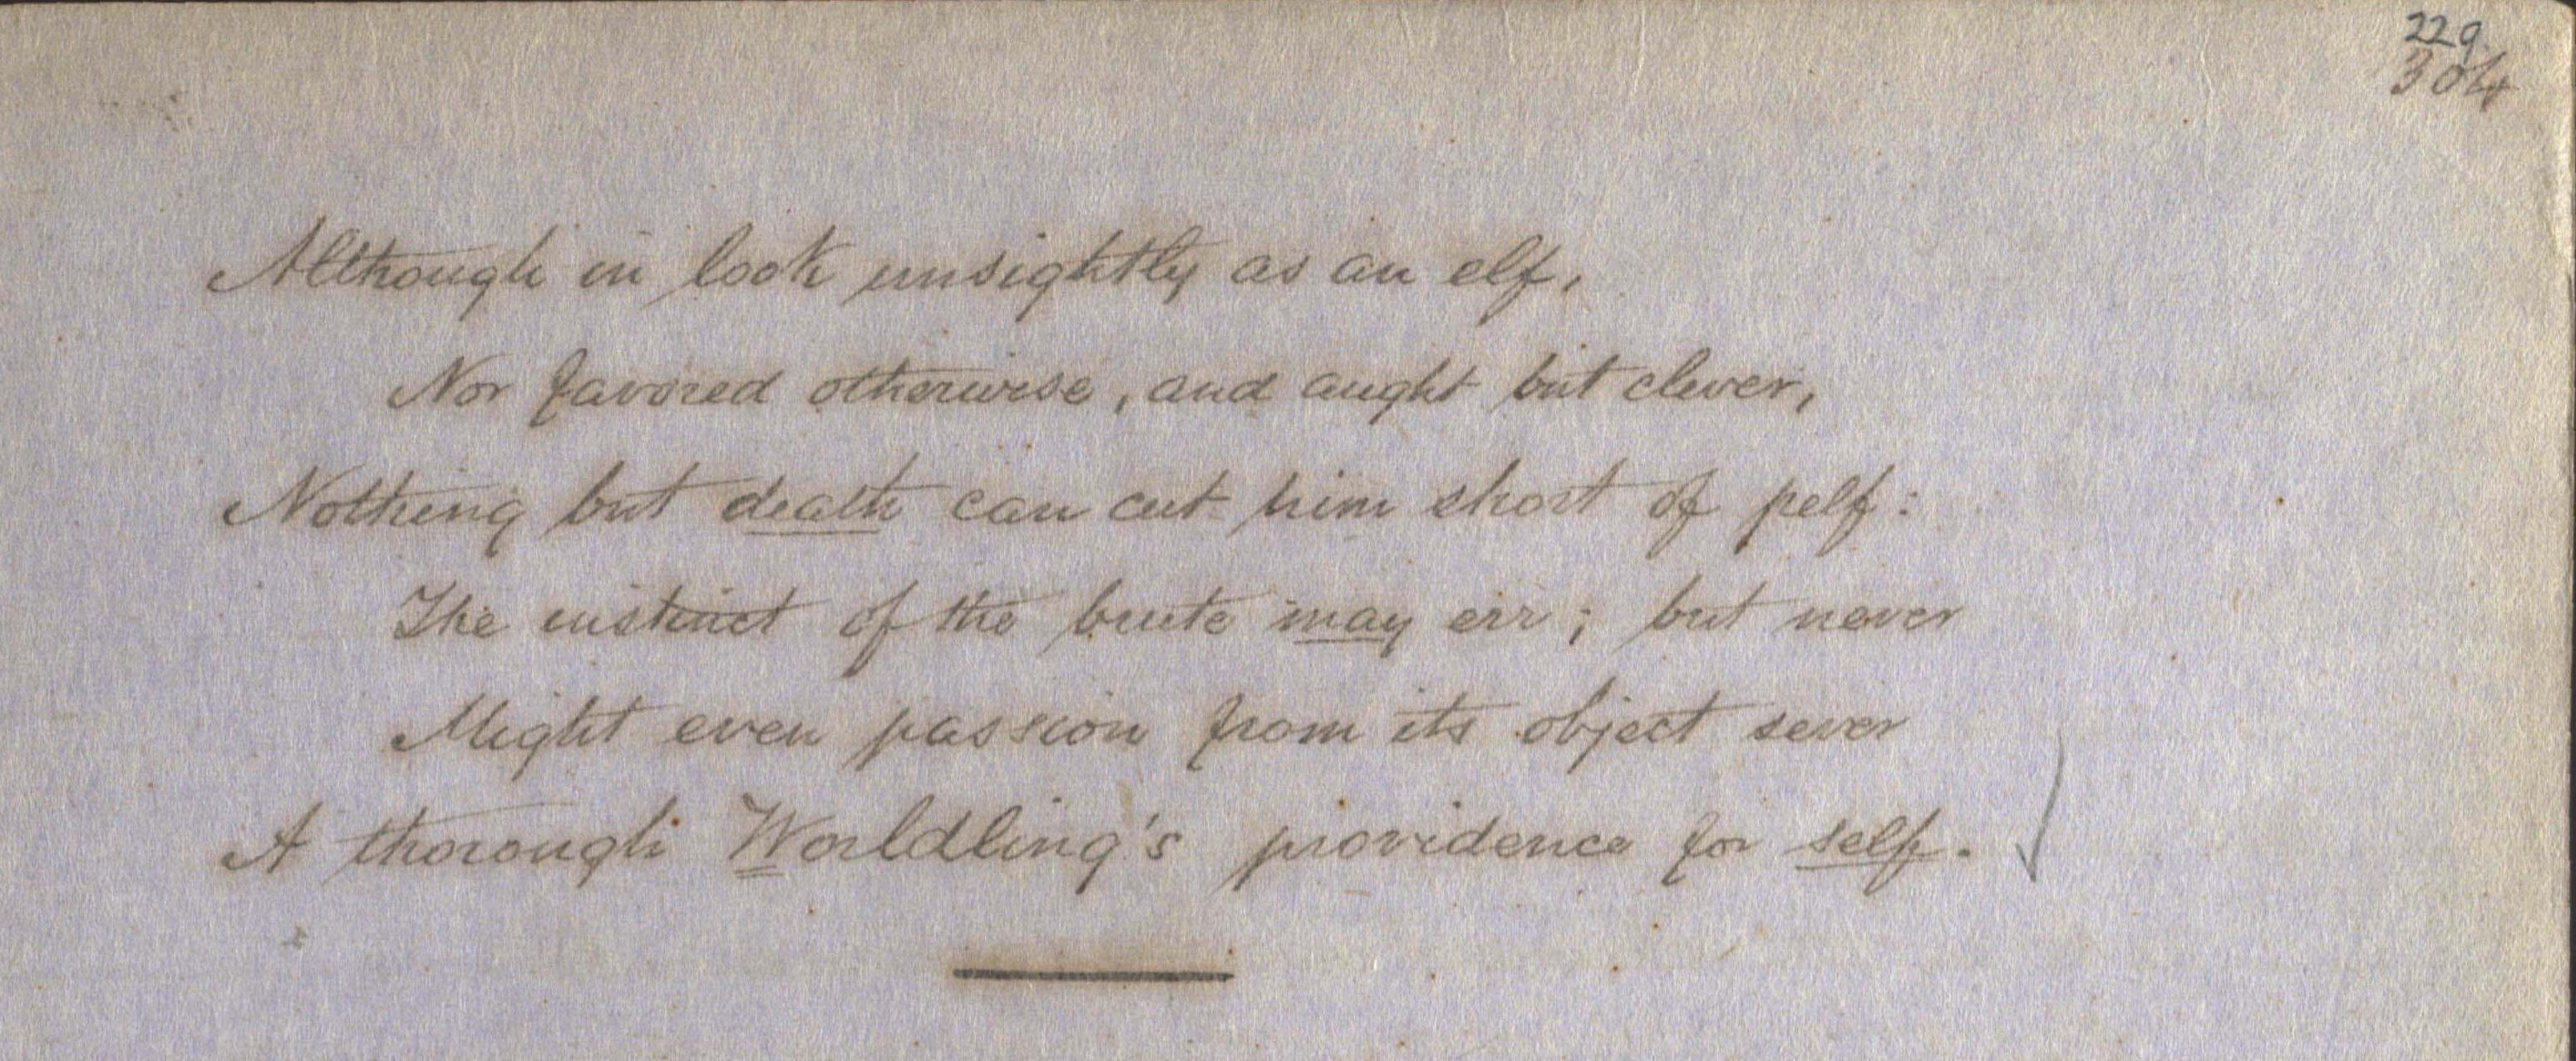 229.
304
Although in look unsightly as an elf,
Nor favored otherwise, and aught but clever,
Nothing but death can cut him short of pelf:
The instinct of the brute may err; but never
Might even passion from its object sever
A thorough Worldling's providence for self.